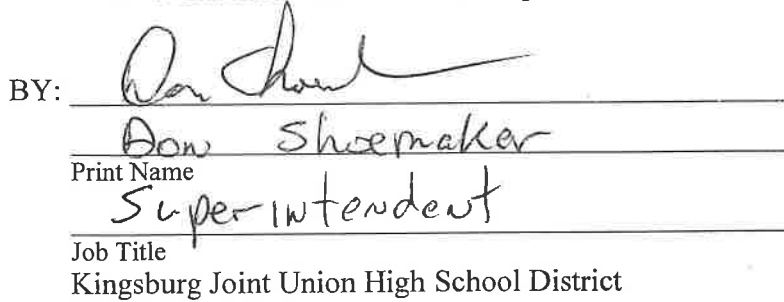 BY: Don Shoemaker
Don Shoemaker
Print Name
Superintendent
Job Title
Kingsburg Joint Union High School District